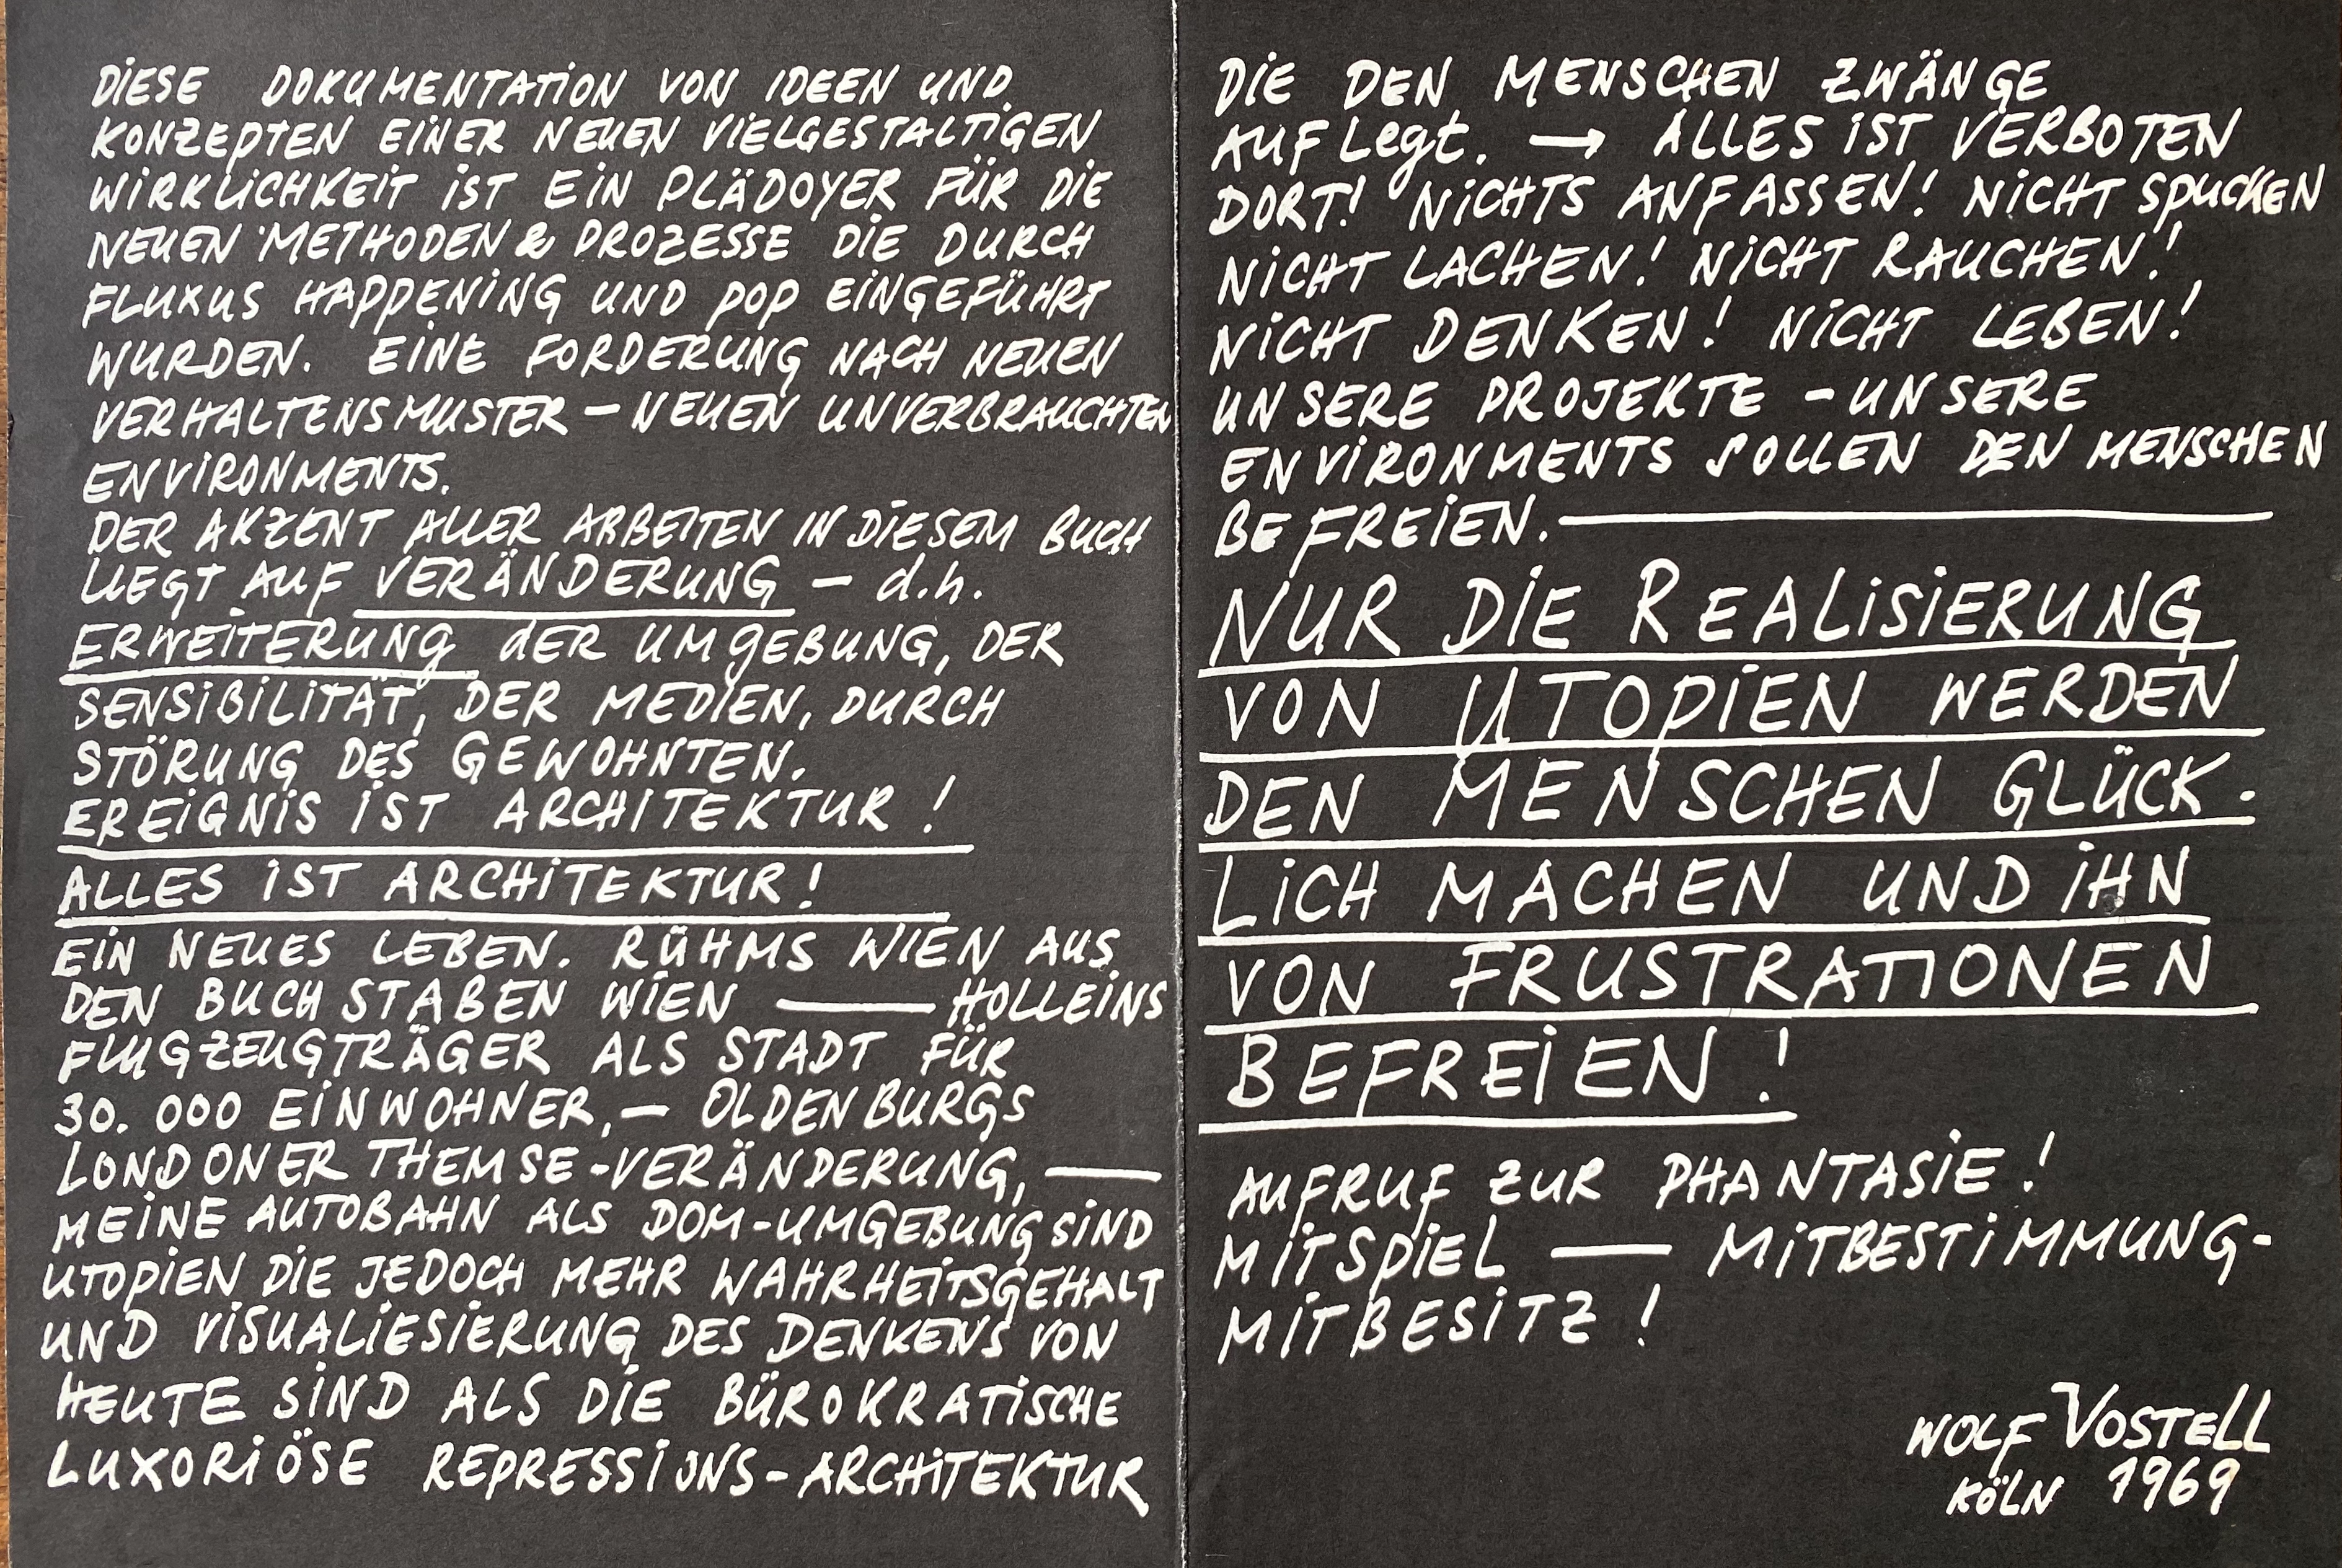 DIESE DOKUMENTATION VON IDEEN UND
KONZEPTEN EINER NEUEN VIELGESTALTIGEN
WIRKLICHKEIT IST EIN PLÄDOYER FÜR DIE
NEUEN METHODEN & PROZESSE DIE DURCH
FLUXUS HAPPENING UND POP EINGEFÜHRT
WURDEN. EINE FORDERUNG NACH NEUEN
VERHALTENSMUSTER – NEUEN UNVERBRAUCHTEN
ENVIRONMENTS.
DER AKZENT ALLER ARBEITEN IN DIESEM BUCH
LIEGT AUF VERÄNDERUNG – d.h.
ERWEITERUNG dER UMgEBUNG, DER
SENSIBILITÄT, DER MEDIEN, DURCH
STÖRUNG DES GEWOHNTEN.
EREIGNIS IST ARCHITEKTUR!
ALLES IST ARCHITEKTUR!
EIN NEUES LEBEN. RÜHMS WIEN AUS
DEN BUCHSTABEN WIEN — HOLLEINS
FLUGZEUGTRÄGER ALS STADT FÜR
30.000 EINWOHNER, – OLDENBURGS
LONDONER THEMSE-VERÄNDERUNG, —
MEINE AUTOBAHN ALS DOM-UMGEBUNG SIND
UTOPIEN DIE JEDOCH MEHR WAHRHEITSGEHALT
UND VISUALIESIERUNG DES DENKENS VON
HEUTE SIND ALS DIE BÜROKRATISCHE
LUXORIÖSE REPRESSIONS-ARCHITEKTUR
DIE DEN MENSCHEN ZWÄNGE
AUFLegt. → ALLES IST VERBOTEN
DORT! NICHTS ANFASSEN! NICHT SPUCKEN
NICHT LACHEN! NICHT RAUCHEN!
NICHT DENKEN! NICHT LEBEN!
UNSERE PROJEKTE – UNSERE
ENVIRONMENTS SOLLEN DEN MENSCHEN
BEFREIEN. —
NUR DIE REALISIERUNG
VON UTOPIEN WERDEN
DEN MENSCHEN GLÜCK-
LICH MACHEN UND IHN
VON FRUSTRATIONEN
BEFREIEN!
AUFRUF ZUR PHANTASIE!
MITSPIEL — MITBESTIMMUNG-
MITBESITZ!
WOLF VOSTELL
KÖLN 1969